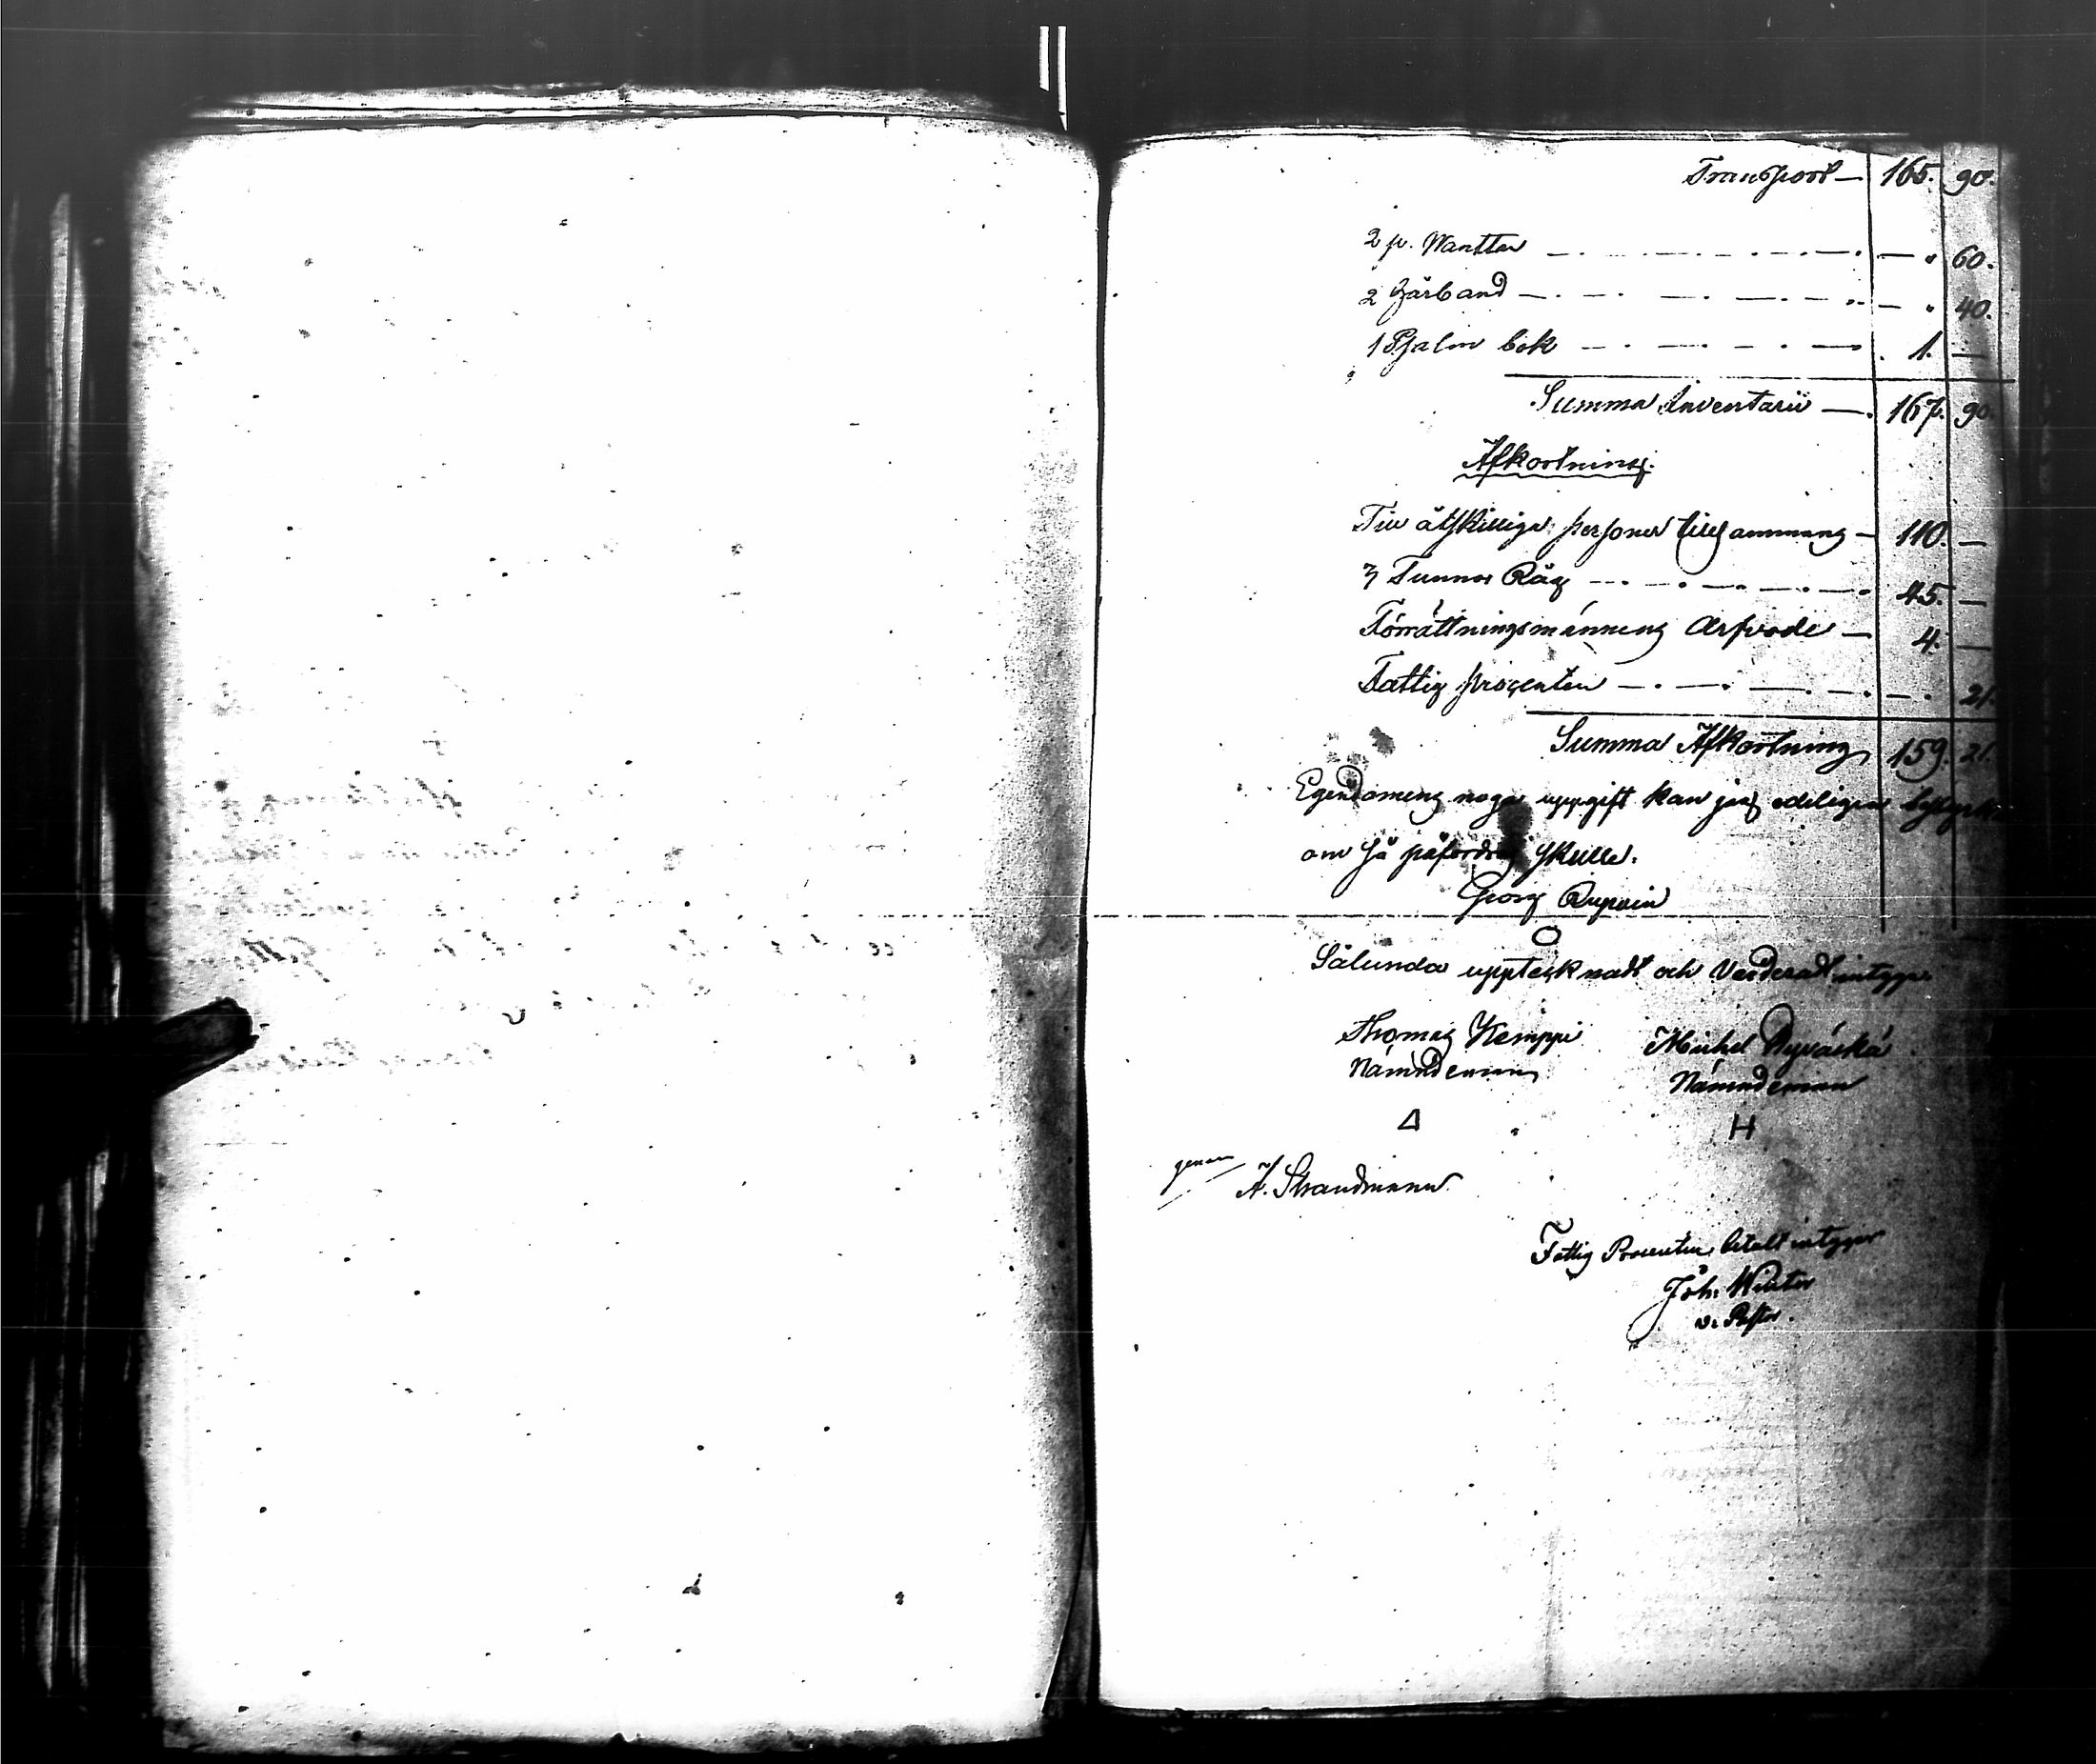 Transport — 165. 90.
2 p. Wanttar — 60.
2 Gårband — 40.
1 Psalm bok — 1. —
Summa Inventarii — 167. 90.
Afkortning.
Till åtskilliga personer tillsammans — 110. —
3 Tunnor Råg — 45. —
Förrättningsmännens Arfvode — 4. —
Fattig procenten — 21.
Summa Afkortning 159. 21.
Egendomens noga uppgift kan jag edeligen
om så påfordras skulle.
Georg
Sålunda upptecknadt och Värderadt intyga
Thomas Kemppi Michel
Nämndeman Nämndeman
H
genom A. Strandmann
Fattig Procenten betalt intygar
Joh. Winter
v. Pastor.